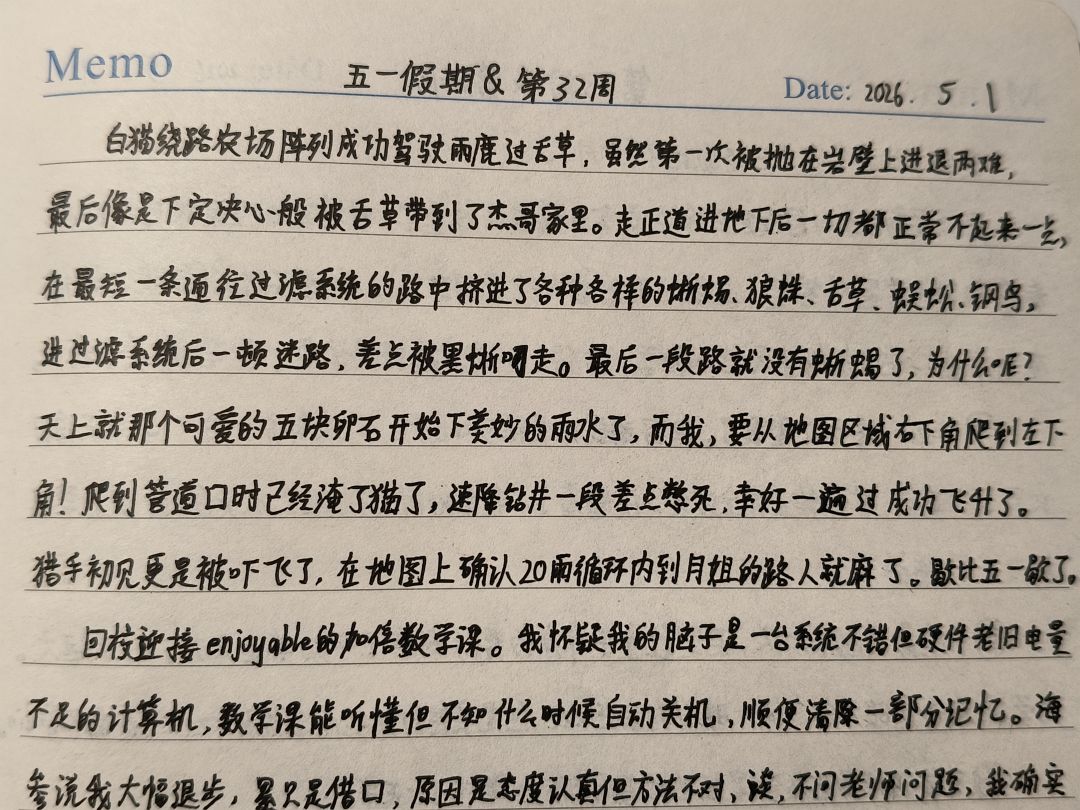 Memo 五一假期&第32周 Date: 2026.5.1
白猫绕路农场阵列成功驾驶雨鹿过舌草，虽然第一次被抛在岩壁上进退两难，
最后像是下定决心一般被舌草带到了杰哥家里。走正道进地下后一切都正常不起来一点，
在最短一条通往过滤系统的路中挤进了各种各样的蜥蜴、狼蛛、舌草、蜈蚣、钢鸟，
进过滤系统后一顿迷路，差点被黑蜥叼走。最后一段路就没有蜥蝎了，为什么呢？
天上就那个可爱的五块卵石开始下美妙的雨水了，而我，要从地图区域右下角爬到左下
角！爬到管道口时已经淹了猫了，速降钻井一段差点憋死，幸好一遍过成功飞升了。
猎手初见更是被吓飞了，在地图上确认20雨循环内到月姐的路人就麻了。歇比五一歇了。
回校迎接enjoyable的加倍数学课。我怀疑我的脑子是一台系统不错但硬件老旧电量
不足的计算机，数学课能听懂但不知什么时候自动关机，顺便清除一部分记忆。海
参说我大幅退步，累只是借口，原因是态度认真但方法不对，诶，不问老师问题，我确实